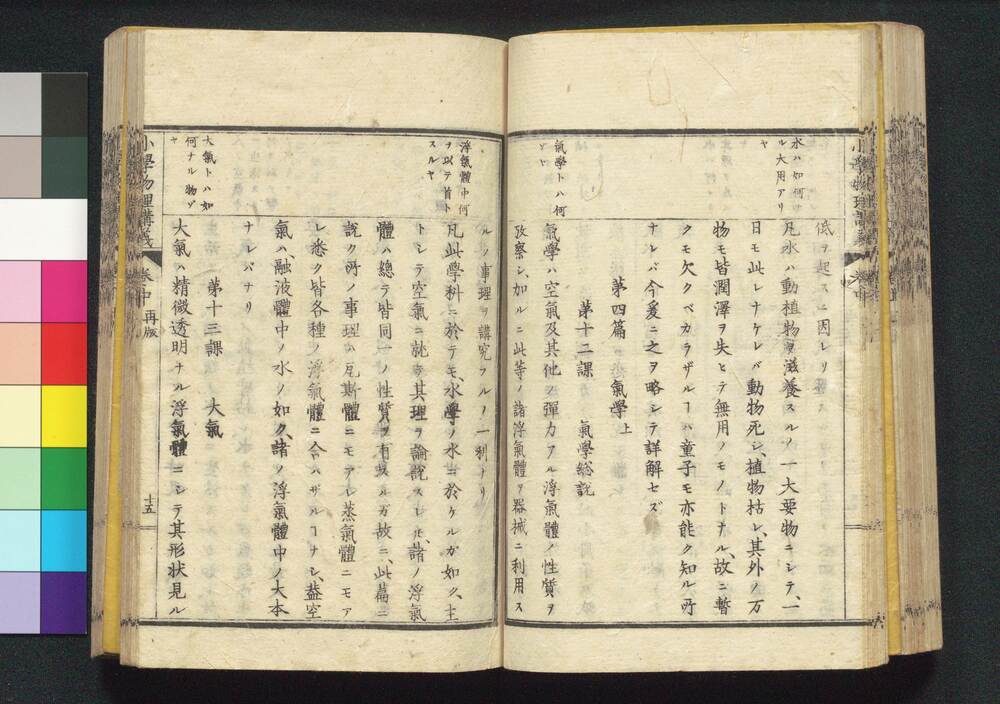 小學物理講義
卷中
水ハ如何ナ
ル大用アリ
ヤ
低ヲ起スニ因レリ
凡水ハ動植物ヲ滋養スルノ一大要物ニシテ、一
日モ此レナケレバ動物死シ、植物枯レ、其外ノ万
物モ皆潤澤ヲ失ヒテ無用ノモノトナル、故ニ暫
クモ欠クベカラザルヿハ童子モ亦能ク知ル所
ナレバ今爰ニ之ヲ略シテ詳解セズ
第四篇 氣學上
第十二課 氣學総説
氣學トハ何
ゾヤ
氣學ハ空氣及其他ノ彈力アル浮氣體ノ性質ヲ
攷察シ、加ルニ此等ノ諸浮氣體ヲ器械ニ利用ス
ルノ事理ヲ講究フルノ一利ナリ
浮氣體中何
ヲ以テ首ト
スルヤ
凡此學科ニ於テモ、水學ノ水ニ於ケルガ如ク、主
トシテ空氣ニ就キ其理ヲ論説スレ𪜈、諸ノ浮氣
體ハ總テ皆同一ノ性質ヲ有スルガ故ニ、此篇ニ
説ク所ノ事理ハ瓦斯體ニモアレ蒸氣體ニモア
レ悉ク皆各種ノ浮氣體ニ合ハザルヿナシ、蓋空
氣ハ、融液體中ノ水ノ如ク、諸ノ浮氣體中ノ大本
ナレバナリ
第十三課 大氣
大氣トハ如
何ナル物ゾ
ヤ
大氣ハ精微透明ナル浮氣體ニシテ其形状見ル
小學物理講義
卷中 再版
十五